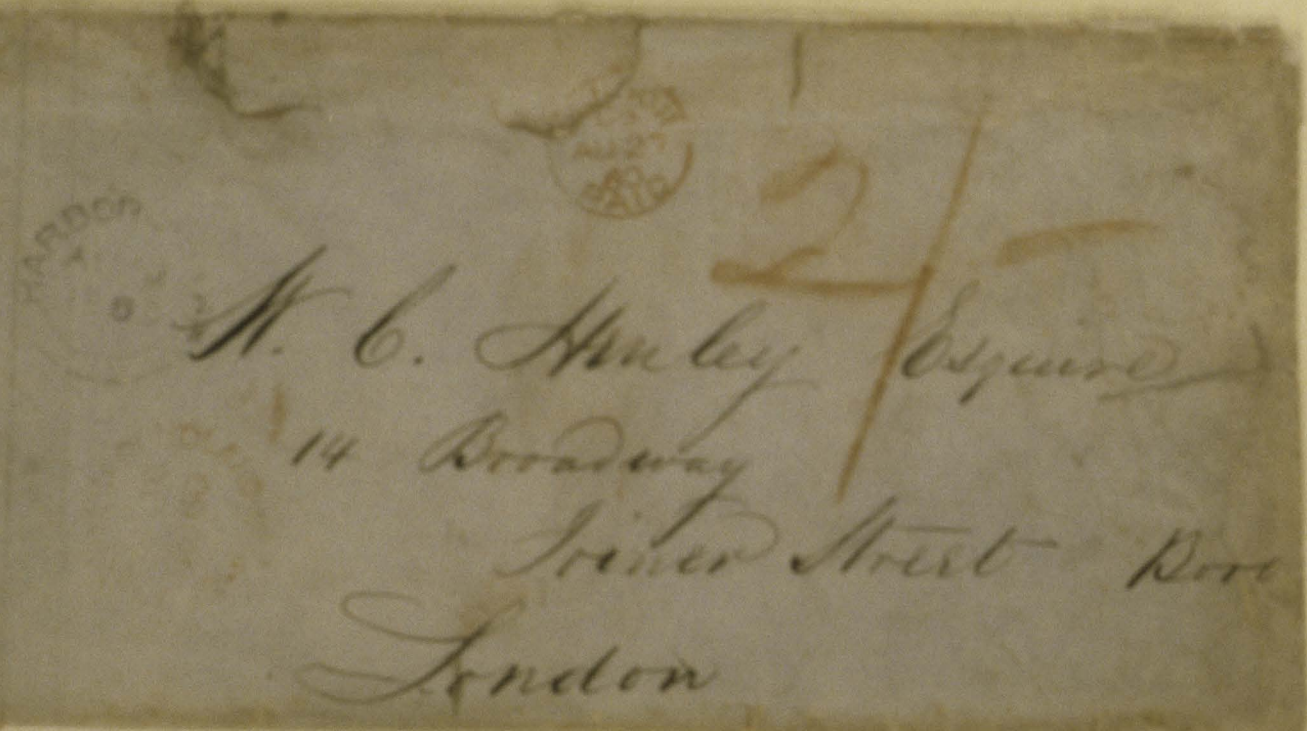 AU 27
PAID
2/-
HARBOR
W. C. Henley Esquire
14 Broadway
Joiner Street Boro
London